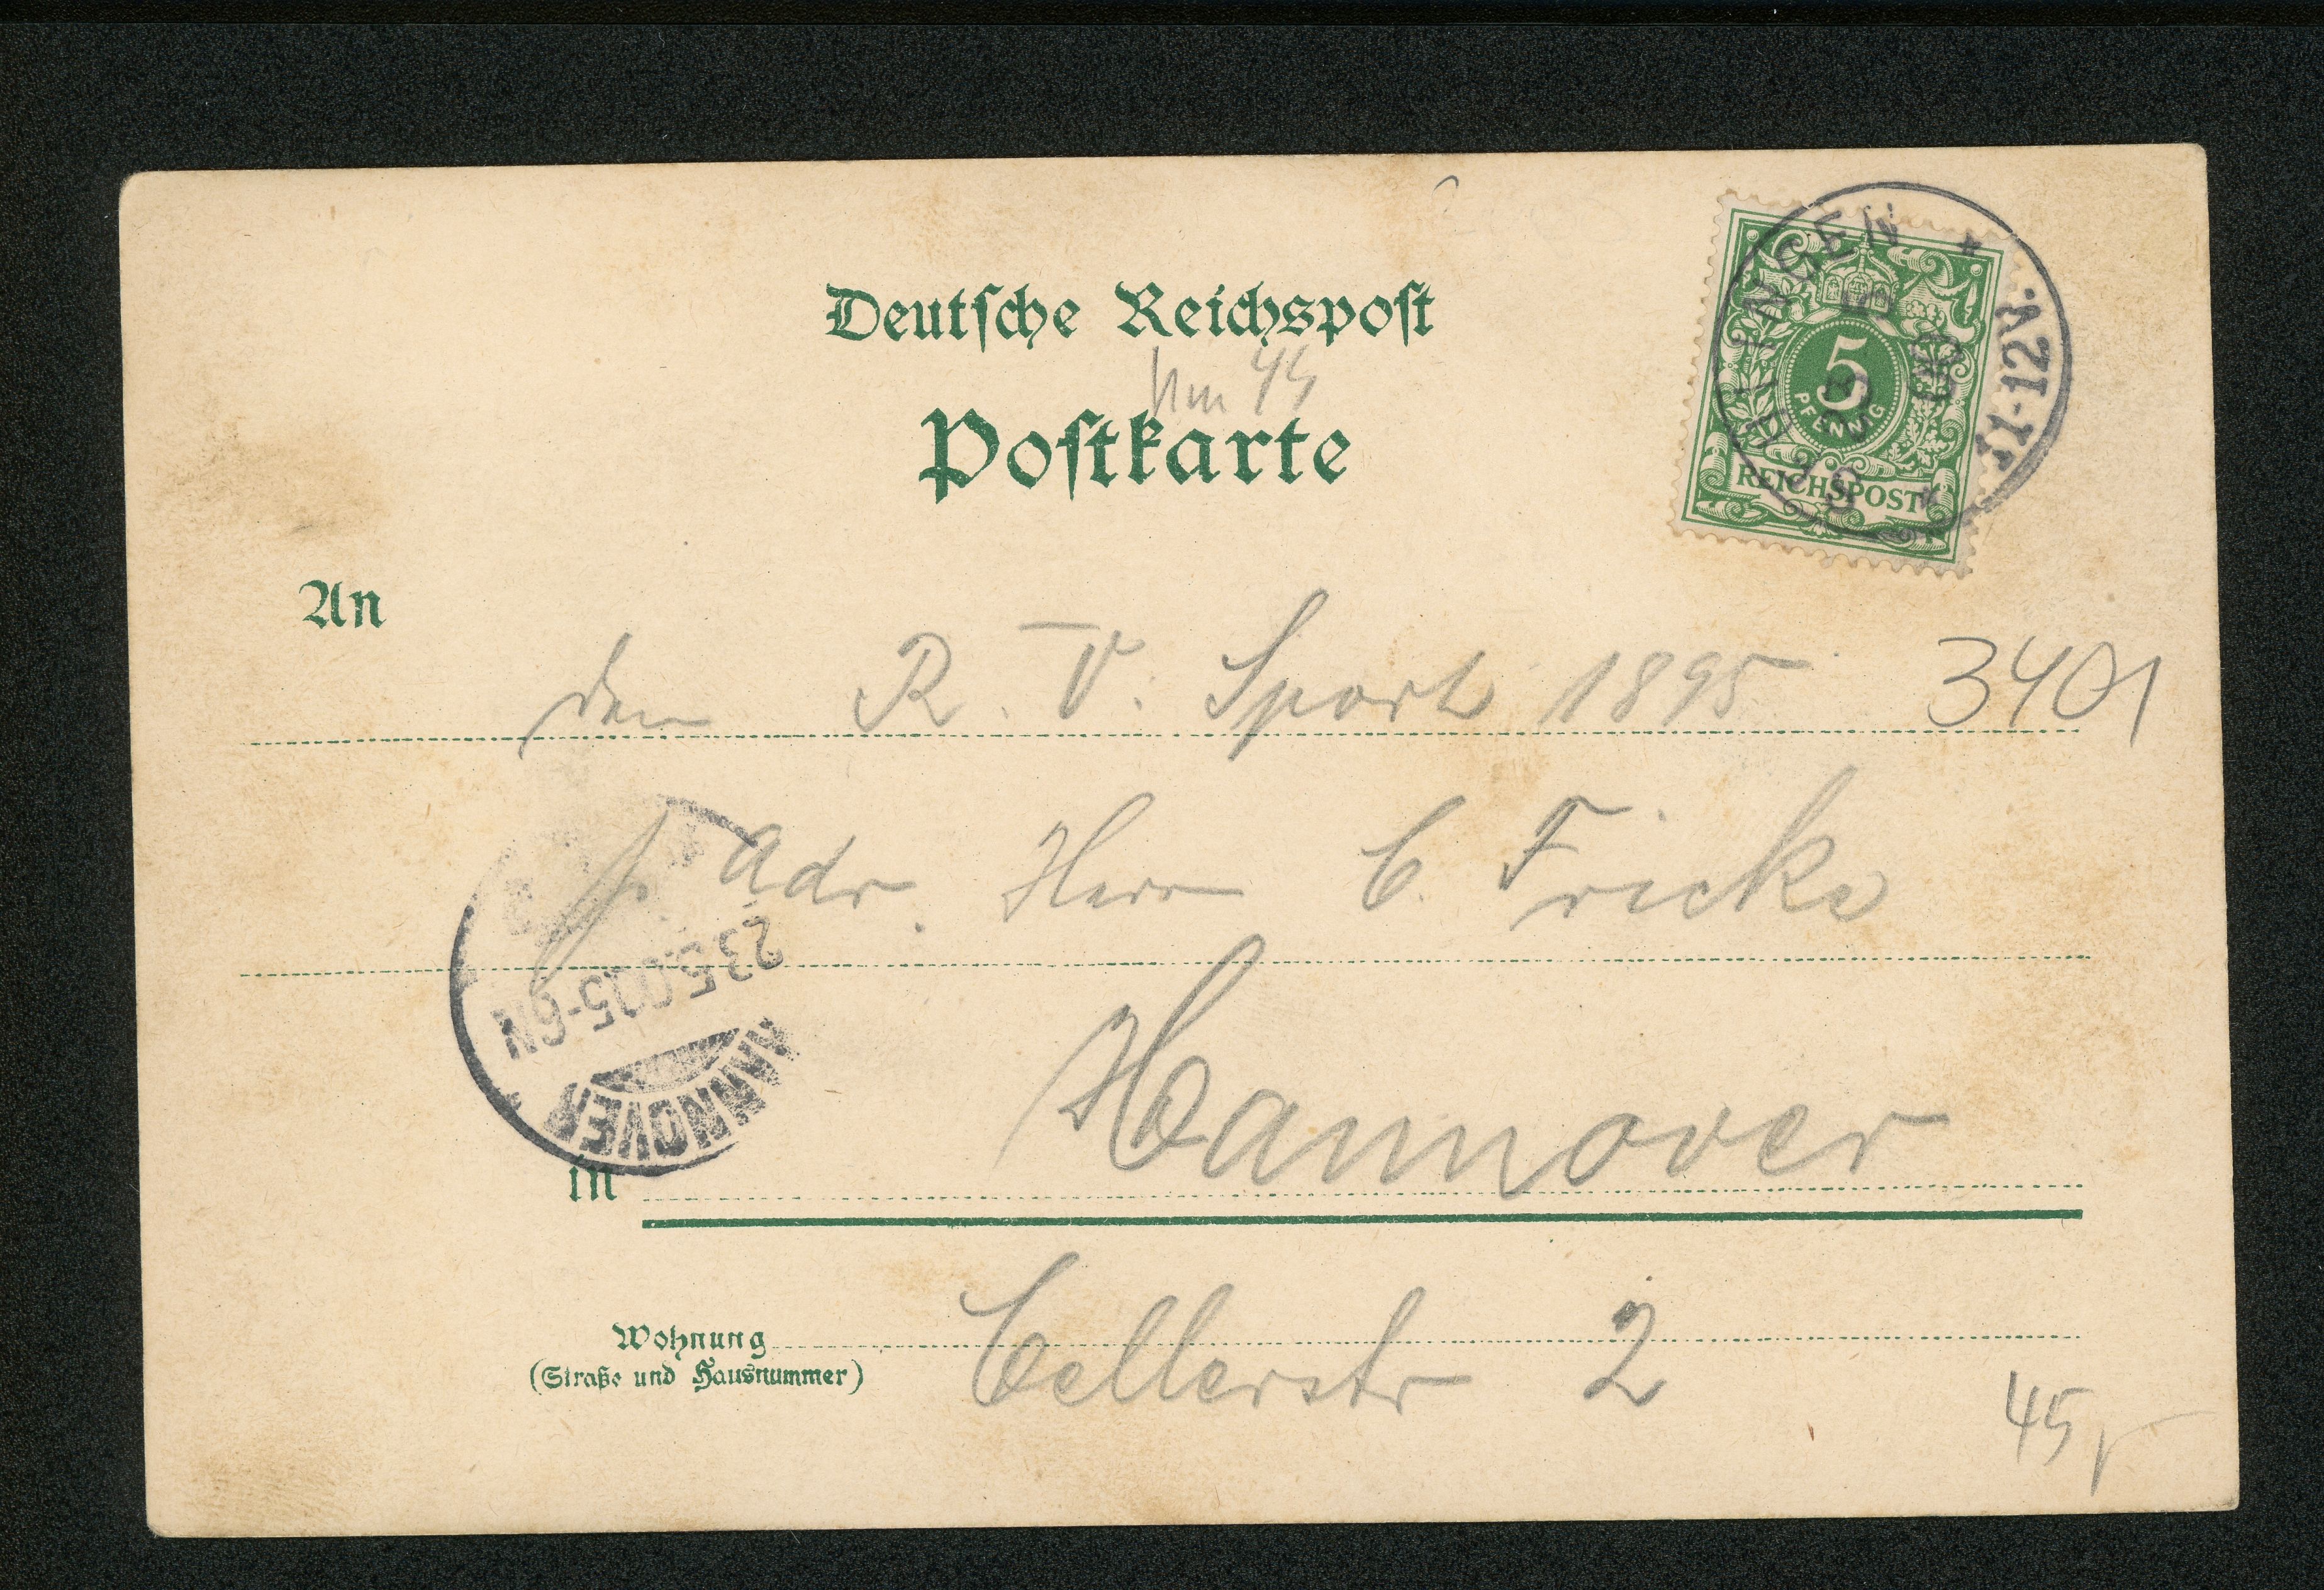 Deutsche Reichspost
44
Postkarte
5
PFENNIG
REICHSPOST
11-12V.
An
den R. V. Sport 1895
3401
Adr. Herr C. Fricke
23.5.00.5-6N
HANNOVER
in Hannover
Wohnung
(Straße und Hausnummer)
Cellerstr 2
45,-